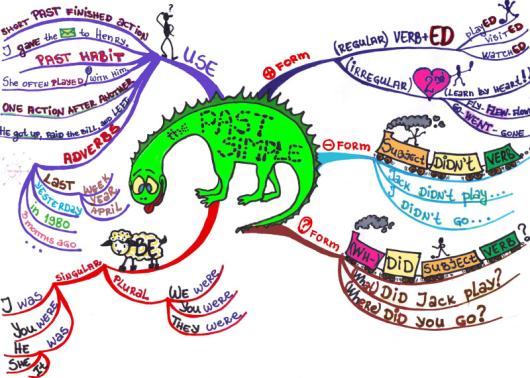 the PAST SIMPLE
USE
SHORT PAST FINISHED ACTION
I gave the to Henry.
PAST HABIT
She OFTEN PLAYED with Him
ONE ACTION AFTER ANOTHER
He got up, paid the bill and LEFT
ADVERBS
LAST
WEEK
YEAR
APRIL
YESTERDAY
in 1980
3 months ago
+ FORM
(REGULAR) VERB+ED
playED
visitED
watchED
(IRREGULAR)
2nd
(LEARN by HEART!!)
FLY-FLEW-FLOWN
GO-WENT-GONE
- FORM
SUBJECT DIDN'T VERB...
Jack DIDN'T play...
I DIDN'T go...
? FORM
(WH- DID SUBJECT VERB?
(What) DID Jack play?
(Where) DID you go?
BE
SINGULAR
I was
You WERE
HE was
SHE
It
PLURAL
WE were
You were
THEY were